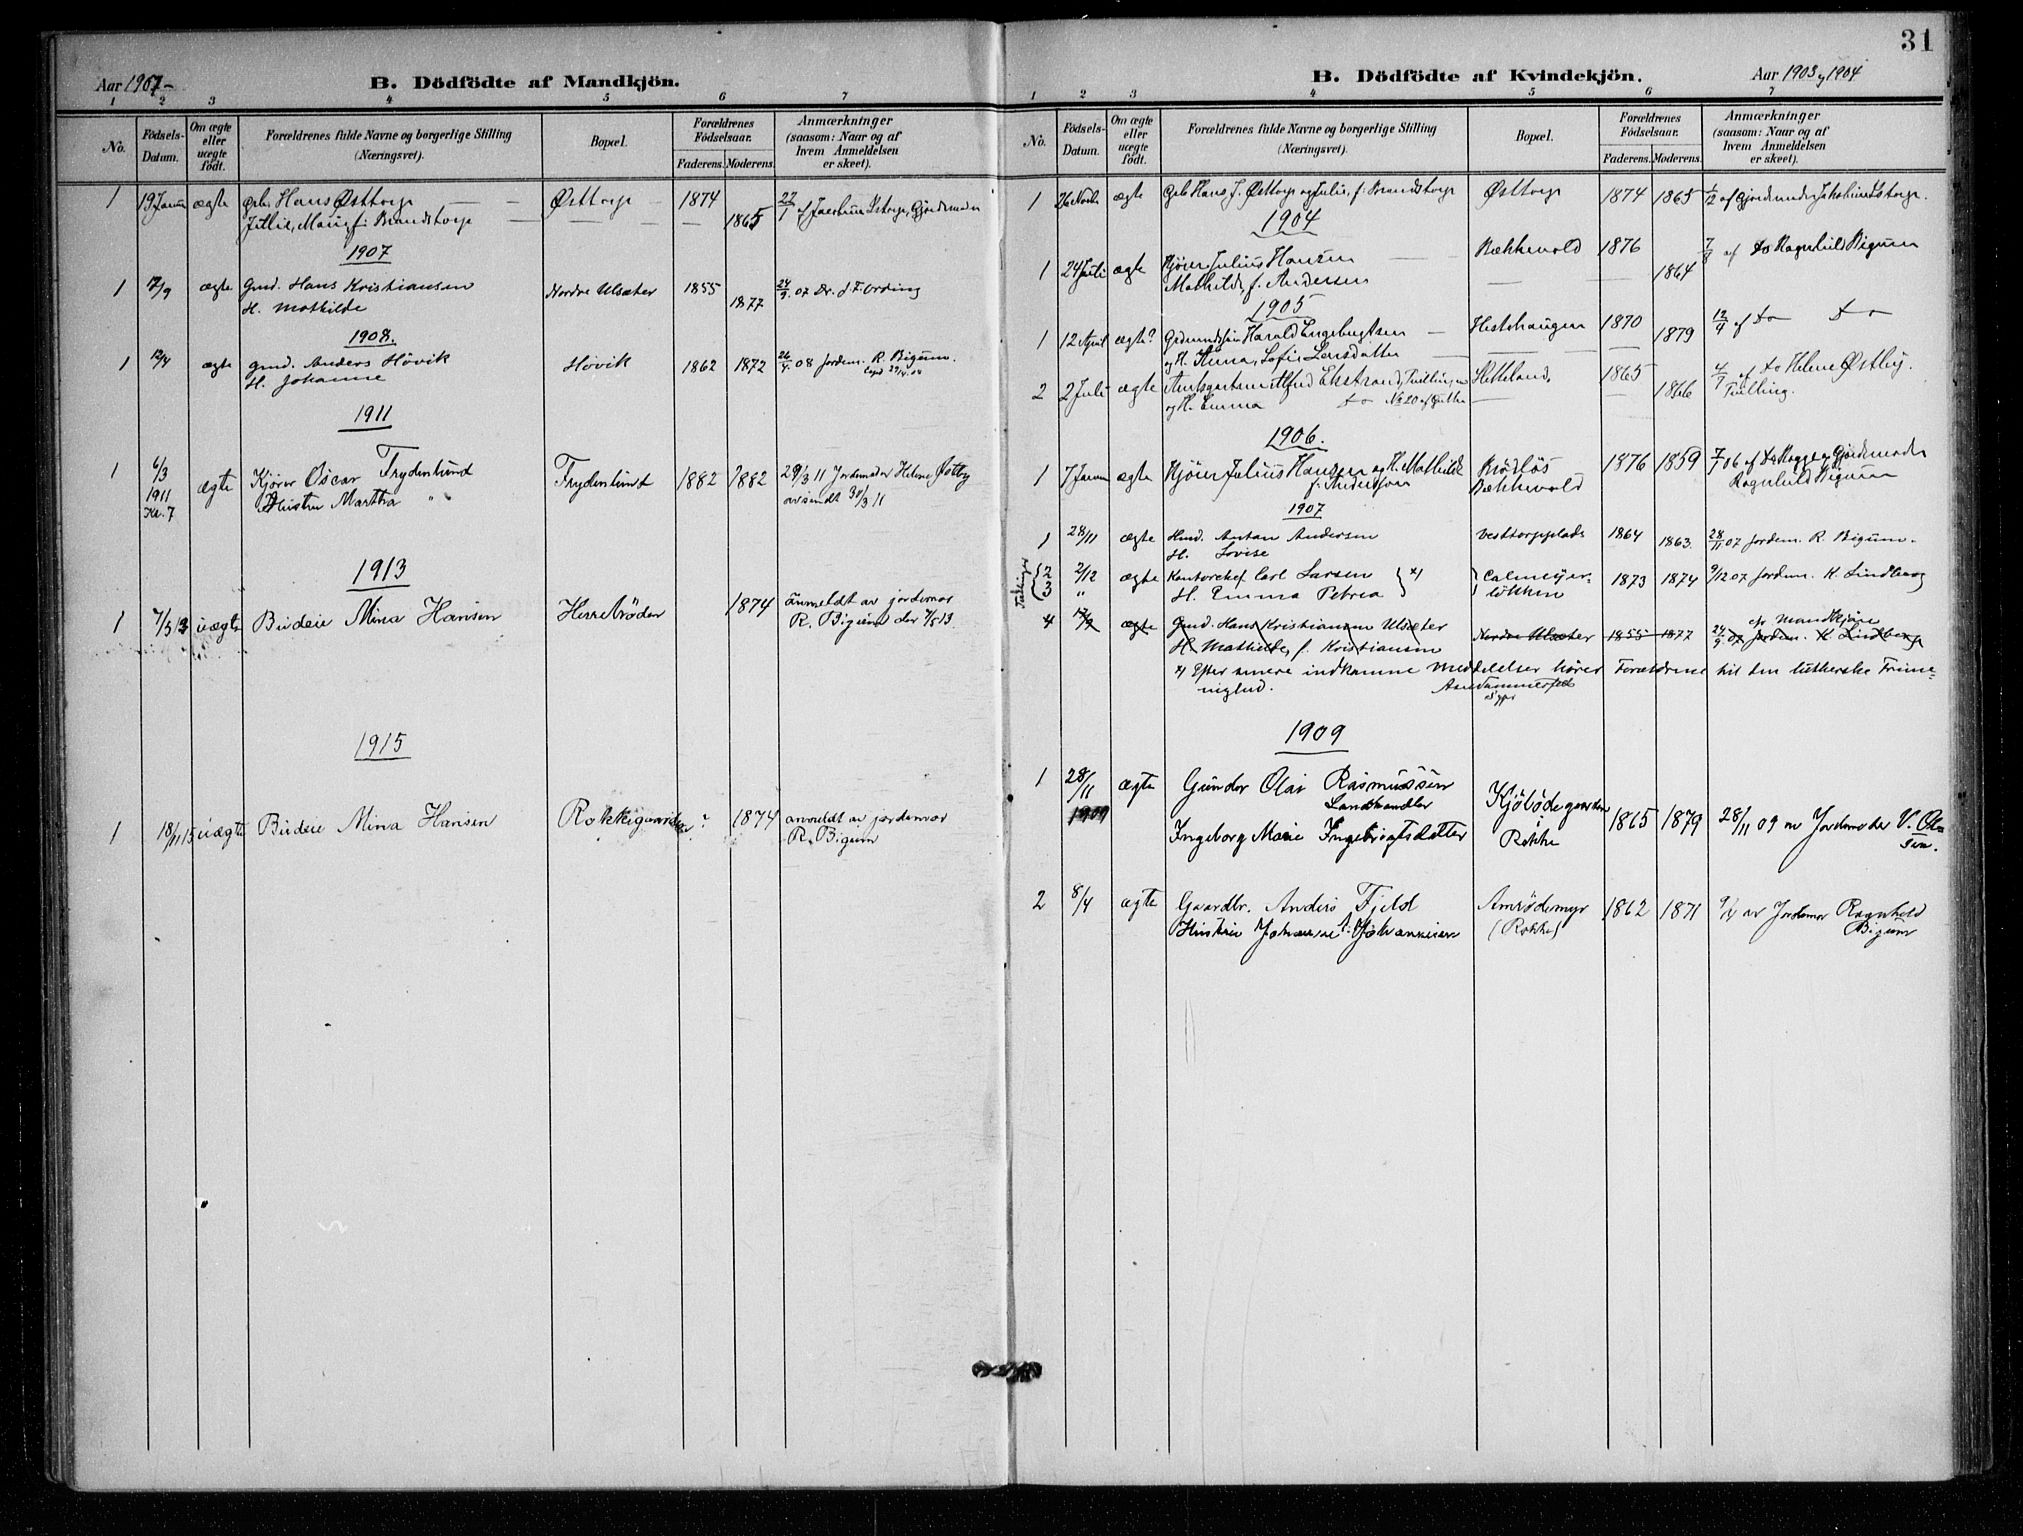 31
Aar 1907-
B. Dödfödte af Mandkjön.
1 2 3 4 5 6 7
No.
Födsels-Datum.
Om ægte eller uægte födt.
Forældrenes fulde Navne og borgerlige Stilling
(Næringsvei).
Bopæl.
Forældrenes Födselsaar.
Faderens. Moderens.
Anmærkninger
(saasom: Naar og af
hvem Anmeldelsen
er skeet).
1 19 Januar ægte Hans Østtorp Østtorp 1874 27/1 af Gjordemoder
Brandstorp 1865
1907
1 12/9 ægte Gmd. Hans Kristiansen Nordre Ulsæter 1855 1877 24/9 07 Dr. Ording
H. Mathilde
1908.
1 12/4 ægte gmd. Anders Hövik Hövik 1862 1872 26/4 08 Jordem. R. Bigum.
H. Johanne
1911
1 6/3 1911 Kl. 7 ægte Kjörer Oscar Frydenlund Frydenlund 1882 1882 29/3 11 Jordemoder Helene Østby
Hustru Martha " avsendt 30/3 11
1913
1 7/5 13 uægte Budeie Mina Hansen Herrebröden 1874 anmeldt av jordemor
R. Bigum den 7/5 13.
1915
1 18/11 15 uægte Budeie Mina Hansen ? 1874 anmeldt av jordemor
R. Bigum
B. Dödfödte af Kvindekjön.
Aar 1903 og 1904
1 2 3 4 5 6 7
No.
Födsels-Datum.
Om ægte eller uægte födt.
Forældrenes fulde Navne og borgerlige Stilling
(Næringsvei).
Bopæl.
Forældrenes Födselsaar.
Faderens. Moderens.
Anmærkninger
(saasom: Naar og af
hvem Anmeldelsen
er skeet).
1 26 Novbr ægte Hans J. Østtorp og Julie, f. Brandstorp Østtorp 1874 1865 1/12 af Gjordemoder
1904
1 24 Juli ægte Kjører Julius Hansen Bækkevold 1876 1864 7/9 af do Ragnhild Bigum
Mathilde f. Andersen
1905
1 12 April ægte? Harald Engebregtsen Hestehaugen 1870 1879 12/4 af do do
og H. Anna Sofie Larsdatter
2 2 Juli ægte Alfred Ekstrand, Tvilling 1865 1866 4/7 af do Helene Østby.
og H. Emma do No 20 af Tvilling.
1906.
1 7 Januar ægte Kjører Julius Hansen og H. Mathilde Rødsløs 1876 1859 7/1 06 af Gjordemoder
f. Andersen Bækkevold Ragnhild Bigum
1907
1 28/11 ægte Hmd. Anton Andersen Vesttorpplads 1864 1863. 28/11 07 Jordem. R. Bigum.
H. Lovise
Tvillinger { 2 2/12 ægte Kontorchef Carl Larsen } x) Calmeyer- 1873 1874 9/12 07 Jordem. K. Lindberg
3 " H. Emma Petrea lökken
4 12/9 ægte Gmd. Hans Kristiansen Ulsæter Nordre Ulsæter 1855 1877 24/9 07 Jordem. K. Lindberg
H. Mathilde, f. Kristiansen
cfr Mandkjöne
x) Efter senere indkomne Meddelelser hörer Forældrene til den lutherske Frime-
nighed.
1909
1 28/11 1909 ægte Gunder Olai Rasmussen 1865 1879 28/11 09 av Jordemoder V. Ol-
Landhandler sen.
Ingeborg Marie Ingebrigtsdatter Rokke
2 8/4 ægte Gaardbr. Anders Fjeld Amrödemyr 1862 1871 9/4 av Jordemor Ragnhild
Hustru Johanne f. Johannesen (Rokke) Bigum